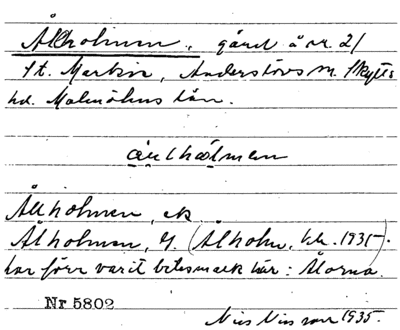 Ålholmen, gård å nr. 21
St. Markie, Anderstorps m. Skytts
hd. Malmöhus län.
Ålholmen, ek.
Ålholmen, g. (Ålholm, kh. 1935).
har förr varit betesmark här: Ålorna.
Nr 5802
Nils Nilsson 1935.